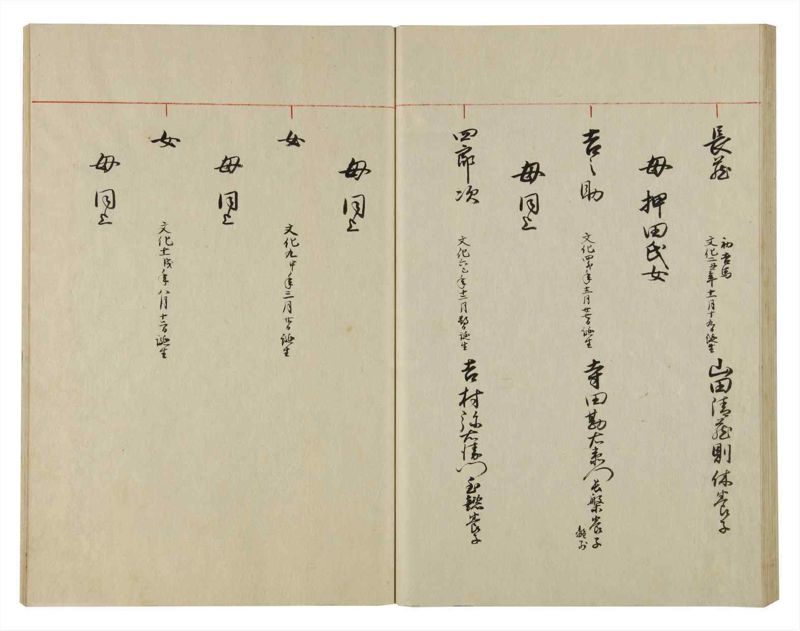 長蔵
初吉五郎
文化二丑年十一月十九日誕生
山田清蔵則休養子
母押田氏女
吉之助
文化四卯年五月廿一日誕生
寺田勘右衛門長繁養子
母同上
四郎次
文化六巳年十二月誕生
吉村弥右衛門養子
母同上
女
文化九申年三月誕生
母同上
女
文化十一戌年八月十一日誕生
母同上